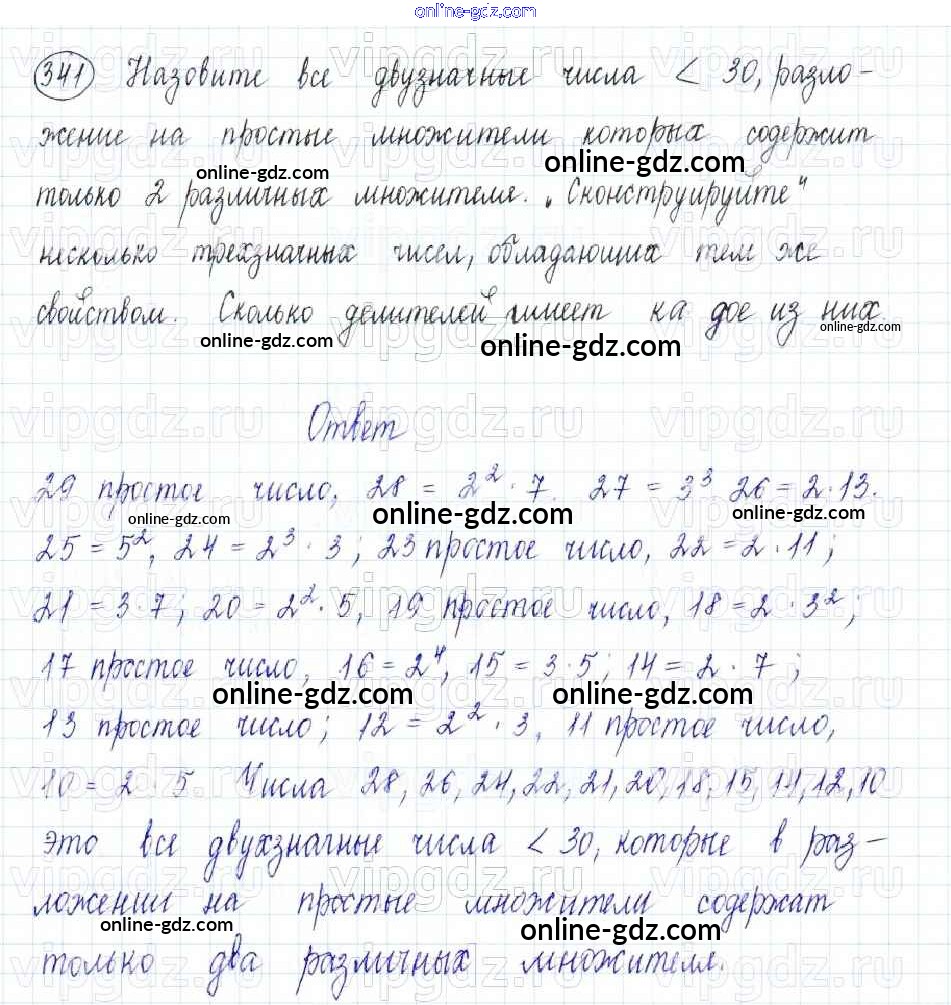 online-gdz.com
341 Назовите все двузначные числа < 30, разло-
жение на простые множители которых содержит
online-gdz.com online-gdz.com
только 2 различных множителя. „Сконструируйте"
несколько трехзначных чисел, обладающих тем же
свойством. Сколько делителей имеет ка дое из них.
online-gdz.com online-gdz.com online-gdz.com
Ответ
29 простое число, 28 = 2² · 7. 27 = 3³ 26 = 2·13.
online-gdz.com online-gdz.com online-gdz.com
25 = 5², 24 = 2³ · 3; 23 простое число, 22 = 2 · 11;
21 = 3·7; 20 = 2² · 5, 19 простое число, 18 = 2 · 3²;
17 простое число, 16 = 2⁴, 15 = 3·5; 14 = 2 · 7;
online-gdz.com online-gdz.com
13 простое число; 12 = 2² · 3, 11 простое число,
10 = 2 · 5 Числа 28, 26, 24, 22, 21, 20, 18, 15, 14, 12, 10
это все двухзначные числа < 30, которые в раз-
ложении на простые множители содержат
online-gdz.com online-gdz.com
только два различных множителя.
vipgdz.ru vipgdz.ru vipgdz.ru